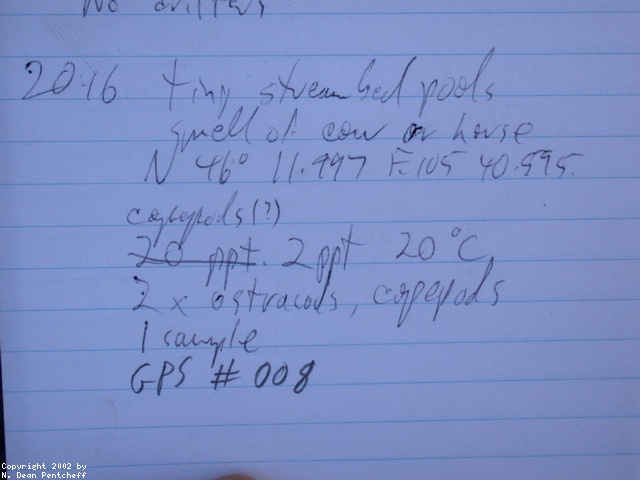 No drifters
20:16 tiny streambed pools
smell of cow or horse
N 46° 11.997 E 105 40.595
copepods(?)
20 ppt. 2ppt 20°C
2 x ostracods, copepods
1 sample
GPS # 008
Copyright 2002 by
N. Dean Pentcheff